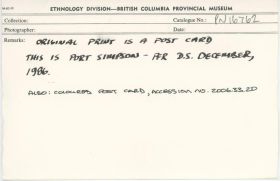 ETHNOLOGY DIVISION—BRITISH COLUMBIA PROVINCIAL MUSEUM
Collection: Catalogue No.: PN16762
Photographer: Date:
Remarks: ORIGINAL PRINT IS A POST CARD
THIS IS PORT SIMPSON - PER D.S. DECEMBER,
1986.
ALSO: COLOURED POST CARD, ACCESSION NO. 2006.33.20